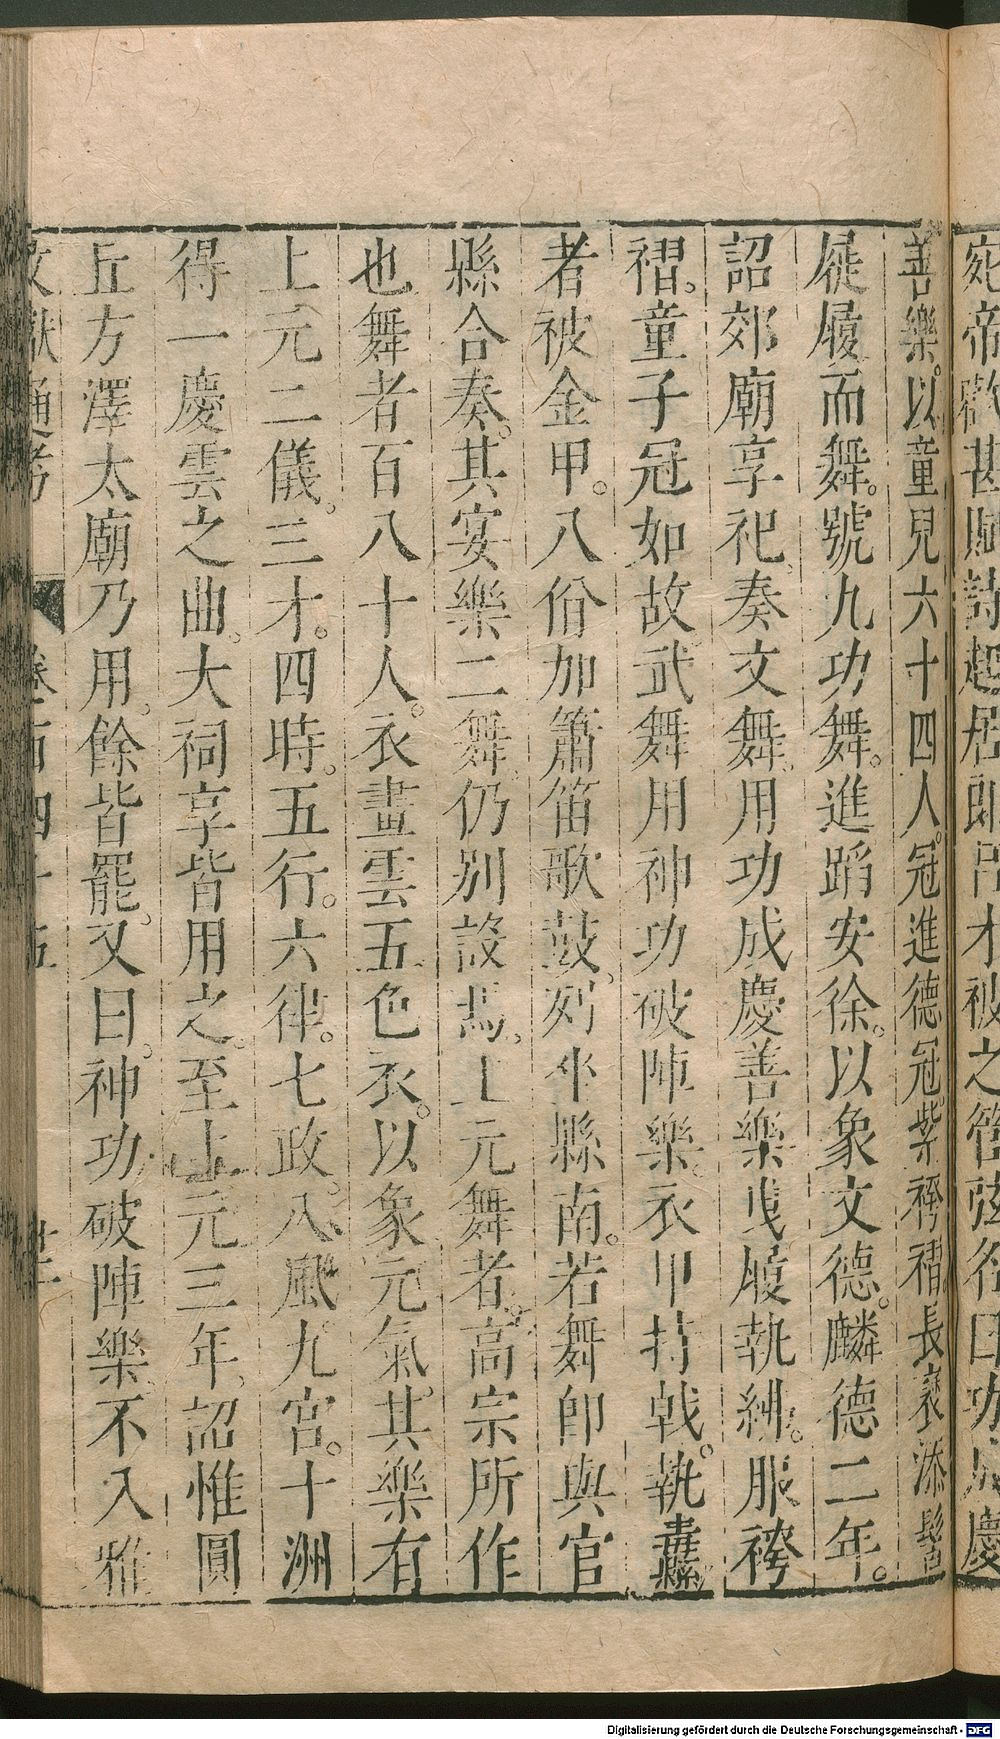 宛帝歡甚賦詩起居郎呂才被之管弦名曰功成慶
善樂。以童兒六十四人。冠進德冠。紫袴褶。長袖漆髻
屣履而舞。號九功舞。進蹈安徐。以象文德。麟德二年。
詔郊廟享祀。奏文舞。用功成慶善樂。曳履執紼。服袴
褶。童子冠如故。武舞用神功破陣樂。衣甲持戟。執纛
者被金甲。八佾加簫笛歌鼓。列坐縣南。若舞即與官
縣合奏。其宴樂二舞。仍別設焉。上元舞者。高宗所作
也舞者百八十人。衣畫雲五色衣。以象元氣。其樂有
上元二儀。三才。四時。五行。六律。七政。八風。九宮。十洲
得一慶雲之曲。大祠享皆用之。至上元三年。詔惟圓
丘方澤太廟乃用。餘皆罷。又曰。神功破陣樂。不入雅
文獻通考 卷一百四十五
Digitalisierung gefördert durch die Deutsche Forschungsgemeinschaft - DFG